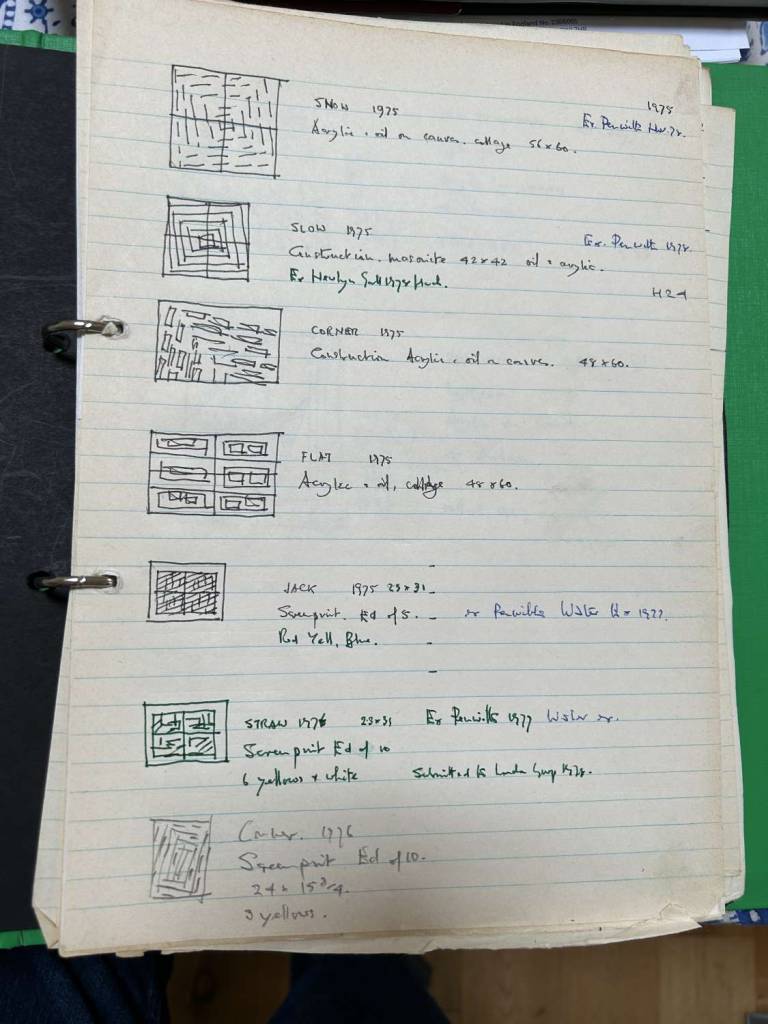 SNOW 1975
1975
Acrylic + oil on canvas. collage 56x60.
Ex. Penwith
SLOW 1975
Ex. Penwith 1978.
Construction. masonite 42x42 oil + acrylic.
Ex Newlyn Gall 1978
CORNER 1975
Construction Acrylic + oil on canvas. 48x60.
FLAT 1975
Acrylic + oil, collage 48x60.
JACK 1975 23x31
Screenprint. Ed of 5. ex Penwith Winter Ex 1977.
Red Yell, Blue.
STRAW 1976 23x31 Ex Penwith 1977 Winter ex.
Screenprint Ed of 10
6 yellows + white Submitted to London Group 1978.
1976
Screenprint Ed of 10.
24 x 15 3/4.
3 yellows.